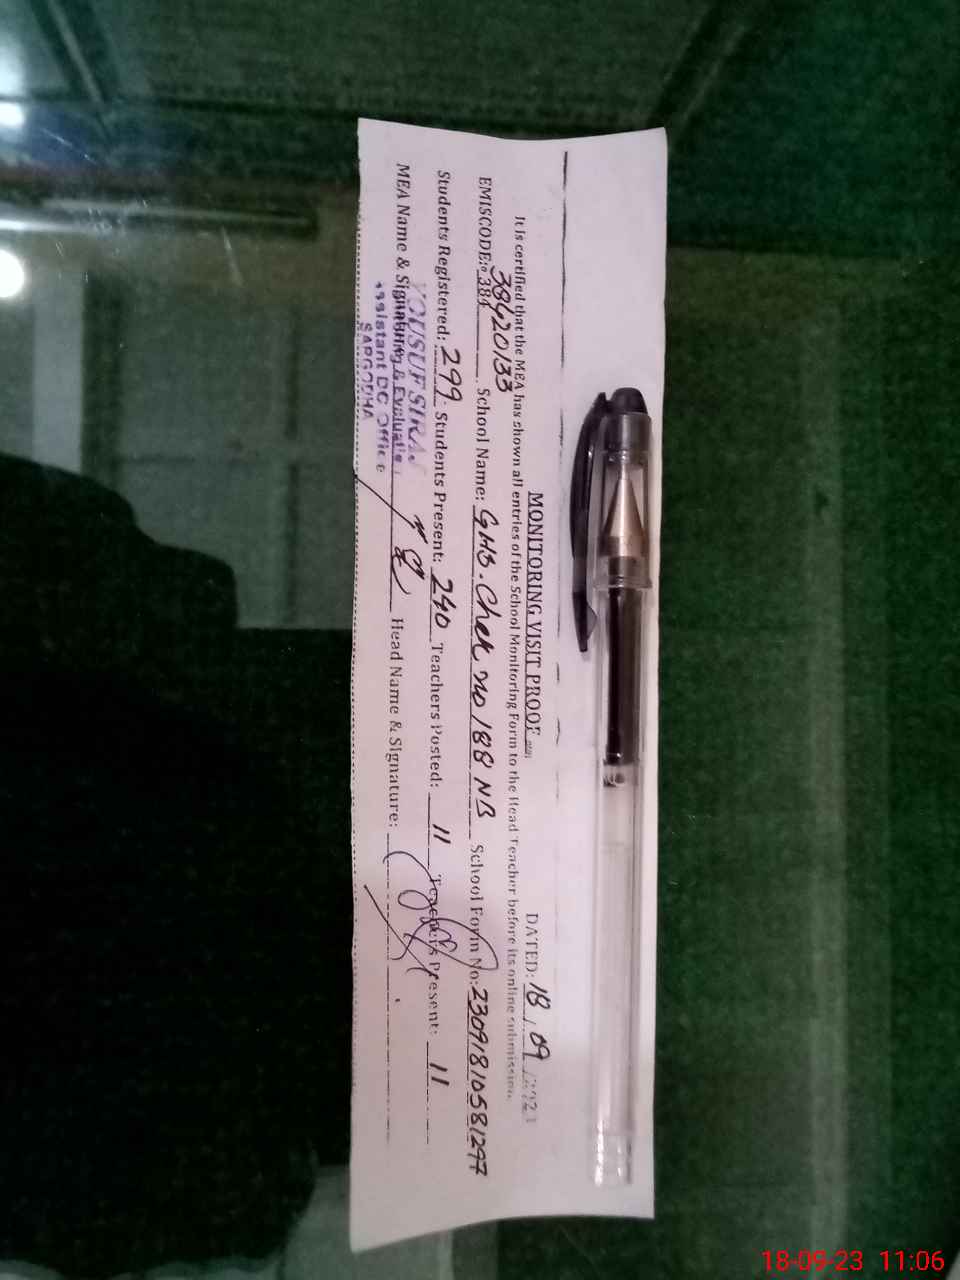 MONITORING VISIT PROOF
DATED: 18 / 09 /
It is certified that the MEA has shown all entries of the School Monitoring Form to the Head Teacher before its online submission.
38420133
EMISCODE: 384 School Name: GHS. Chak no 188 NB School Form No: 23091810581297
Students Registered: 299 Students Present: 240 Teachers Posted: 11 Teachers Present: 11
MEA Name & Signature: Head Name & Signature:
YOUSUF SIRAJ
Monitoring & Evaluation
Assistant DC Office
SARGODHA
18-09-23 11:06